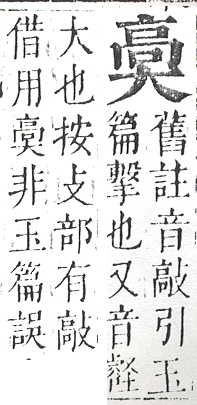 舊註音敲引玉
篇擊也又音
大也按攴部有敲
借用非玉篇誤